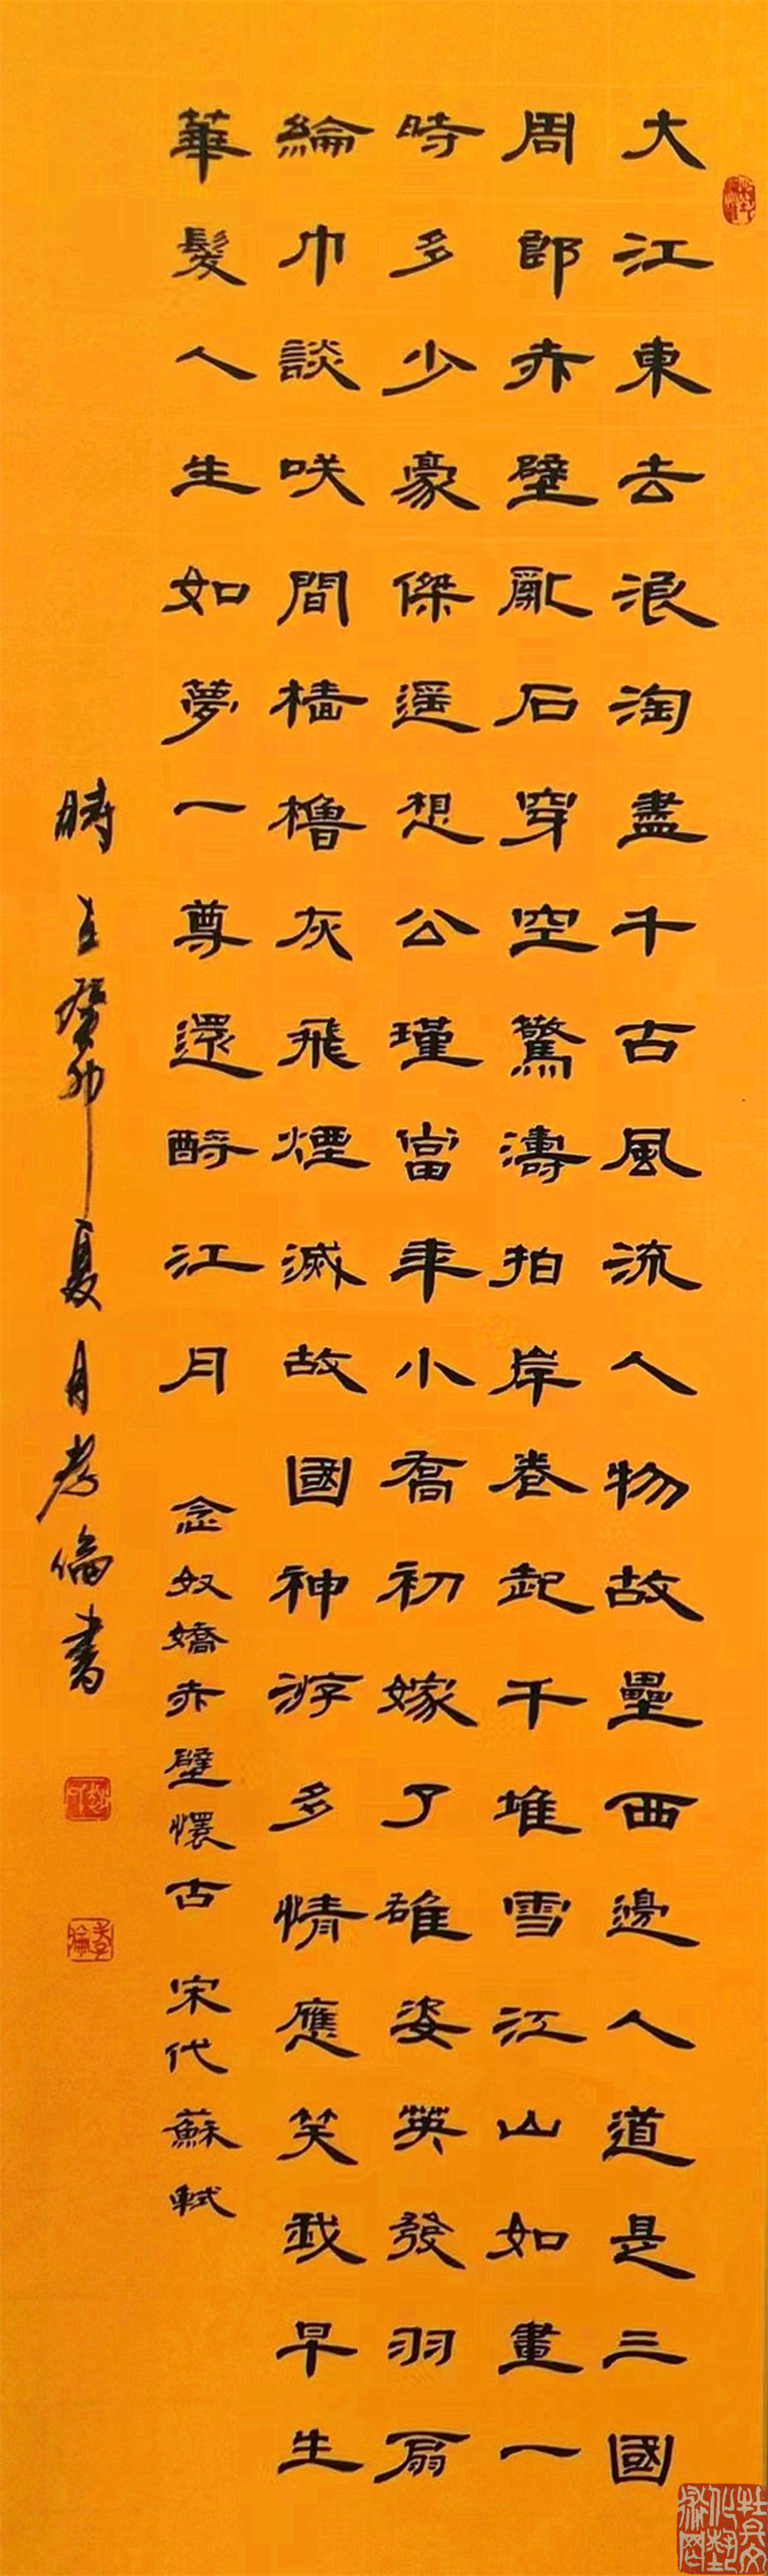 大江東去浪淘盡千古風流人物故壘西邊人道是三國
周郎赤壁亂石穿空驚濤拍岸卷起千堆雪江山如畫一
時多少豪傑遥想公瑾當年小喬初嫁了雄姿英發羽扇
綸巾談咲間樯櫓灰飛煙滅故國神游多情應笑我早生
華髮人生如夢一尊還酹江月 念奴嬌赤壁懷古 宋代 蘇軾
時在癸卯夏月孝倫書